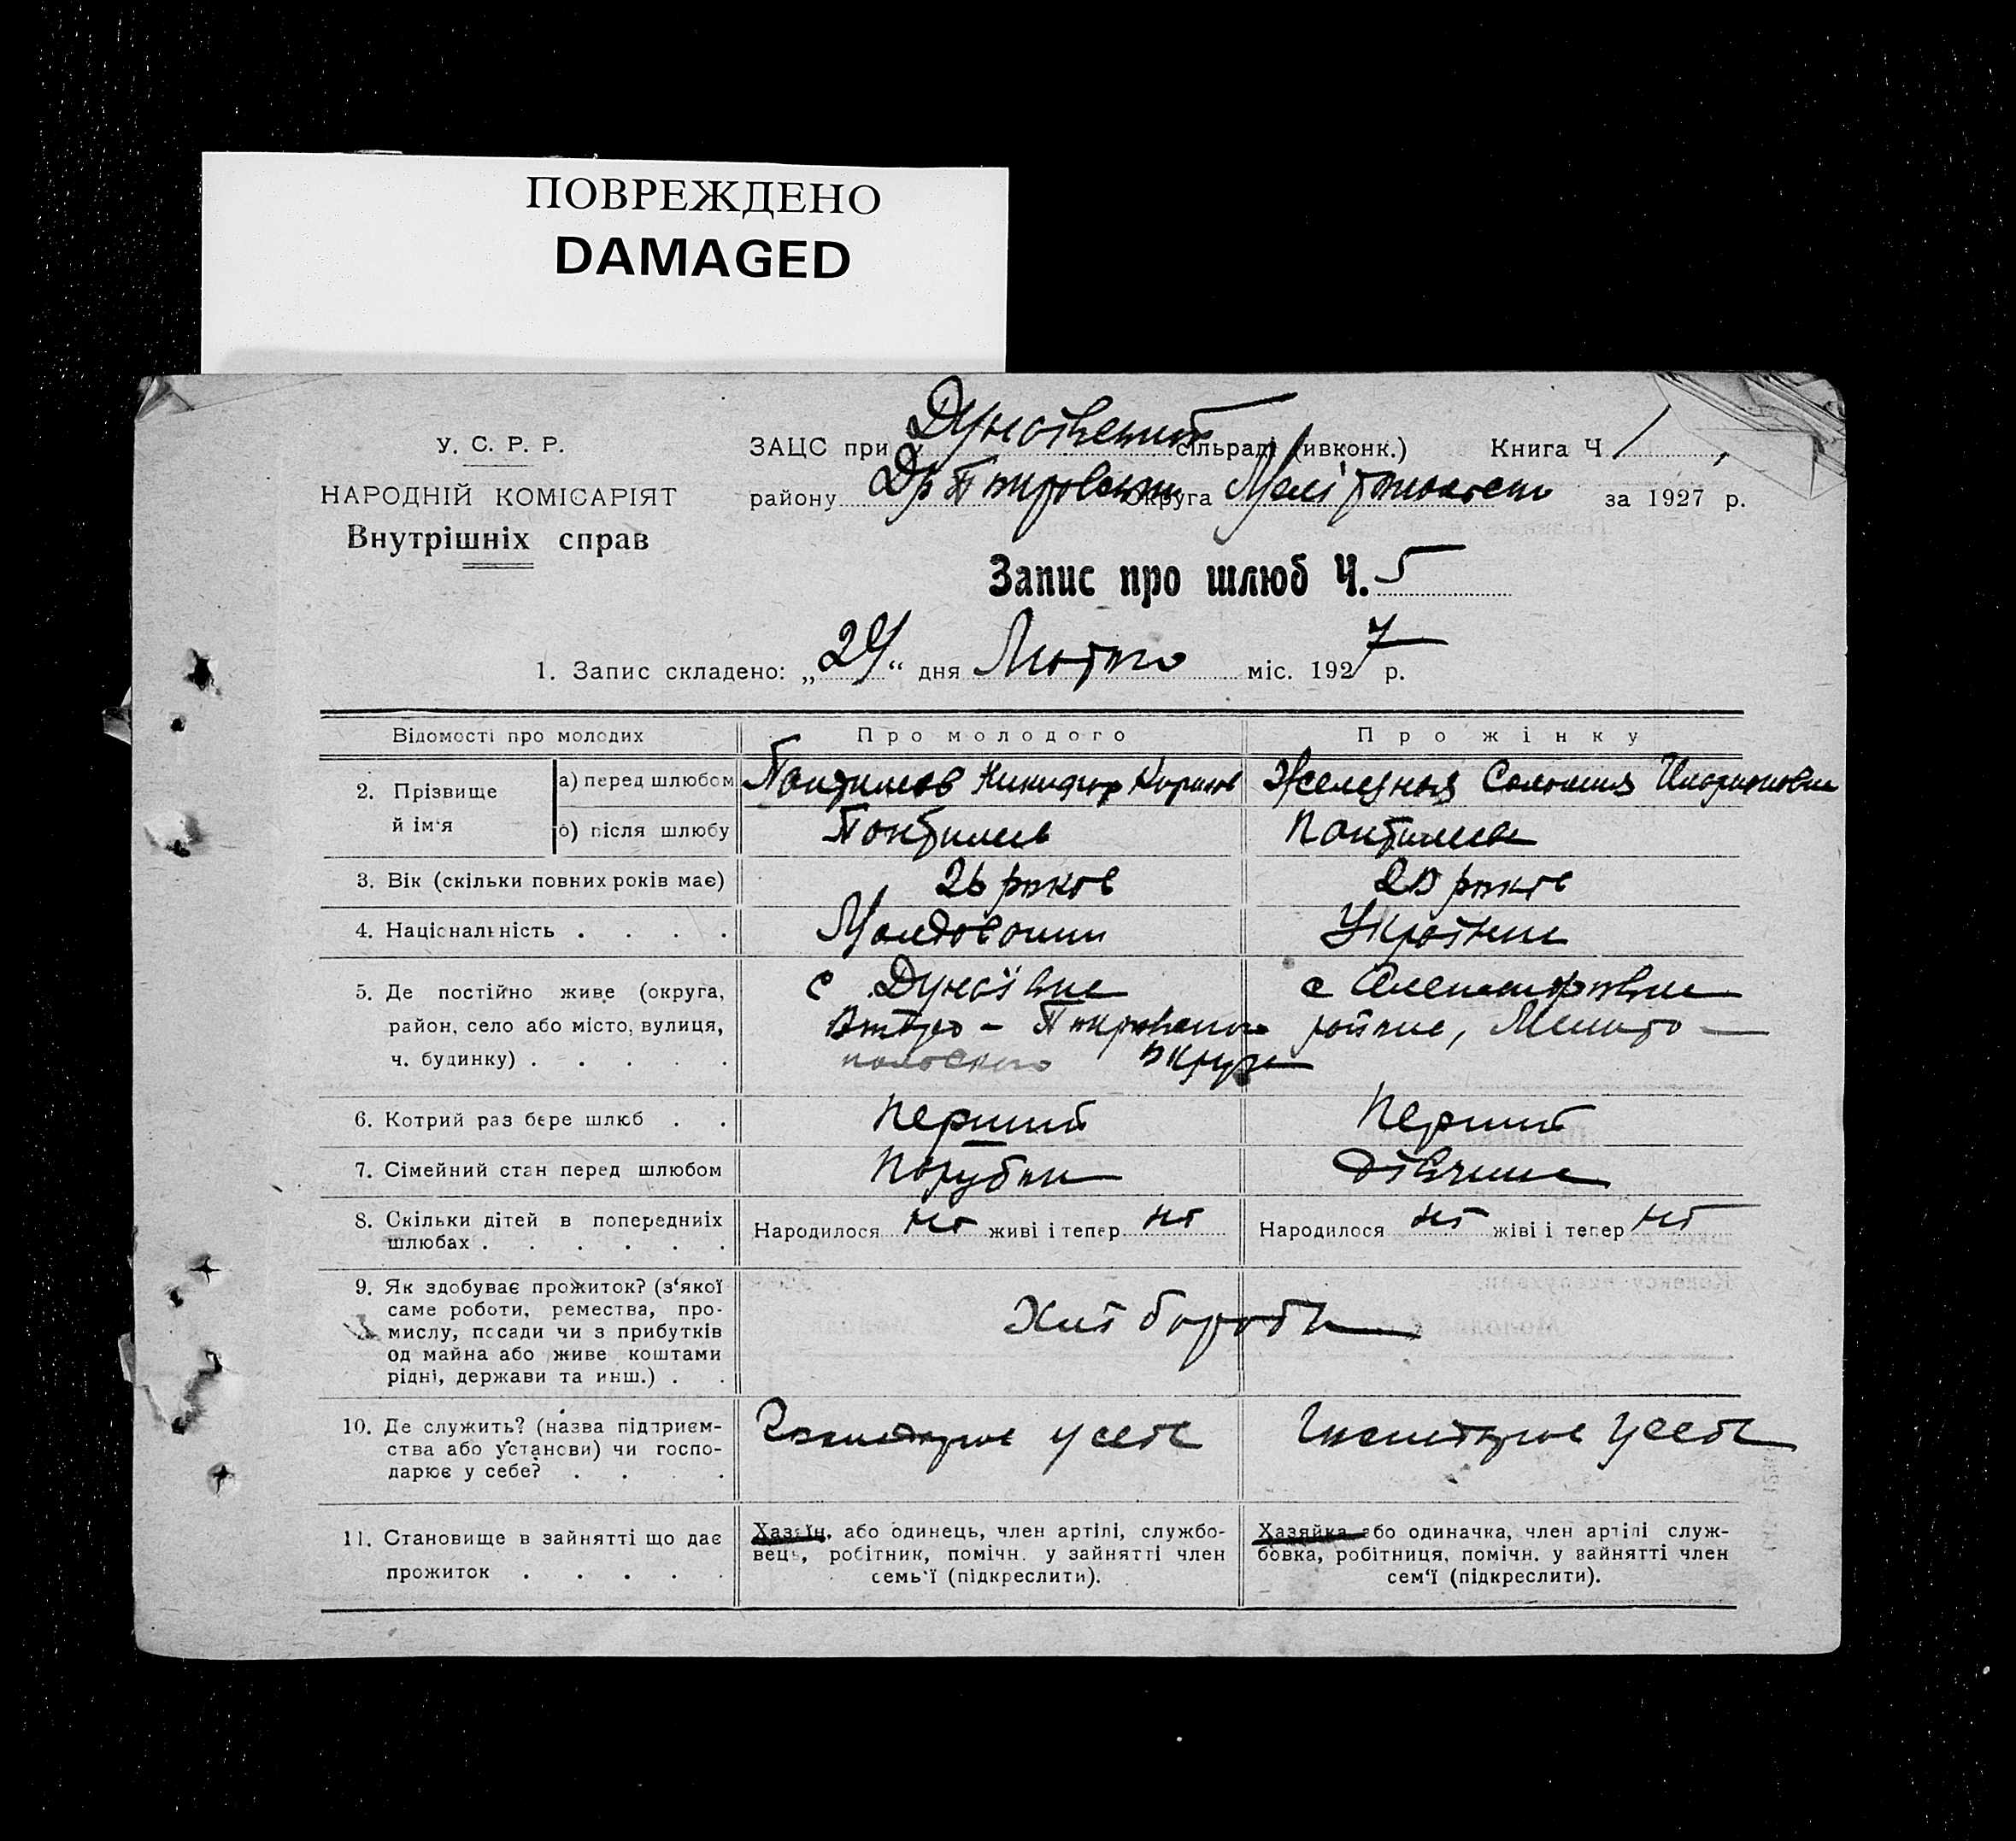 ПОВРЕЖДЕНО
DAMAGED
У. С. Р. Р.
НАРОДНІЙ КОМІСАРІЯТ
Внутрішніх справ
ЗАЦС при Дунаївский сільраді (ивконк.) Книга Ч 1
району Округа за 1927 р.
Запис про шлюб Ч. 5
1. Запис складено: „24“ дня Лютого міс. 1927 р.
Відомості про молодих Про молодого Про жінку
2. Прізвище й ім'я
а) перед шлюбом Никифор Железная Соломия Иларионовна
б) після шлюбу
3. Вік (скільки повних років має) 26 роков 20 роков
4. Націснальність . . . . Молдованин Украінка
5. Де постійно живе (округа, с Дунаівка с
район, село або місто, вулиця, района, Мелито-
ч. будинку) . . . . . польского округа
6. Котрий раз бере шлюб . . Перший Перший
7. Сімейний стан перед шлюбом Парубок дівчина
8. Скільки дітей в попередниіх Народилося ні живі і тепер ні Народилося ні жіві і тепер ні
шлюбах . . . . . .
9. Як здобуває прожиток? (з'якої
саме роботи, ремества, про-
мислу, посади чи з прибутків Хліборобъ
од майна або живе коштами
рідні, держави та инш.) . .
10. Де служить? (назва підприєм-
ства або установи) чи госпо- у себе у себе
дарює у себе? . . . .
11. Становище в зайнятті що дає
прожиток . . . . .
Хазяїн, або одинець, член артілі, службо-
вець, робітник, помічн. у зайнятті член
семь'ї (підкреслити).
Хазяйка або одиначка, член артілі служ-
бовка, робітниця, помічн. у зайнятті член
сем'ї (підкреслити).